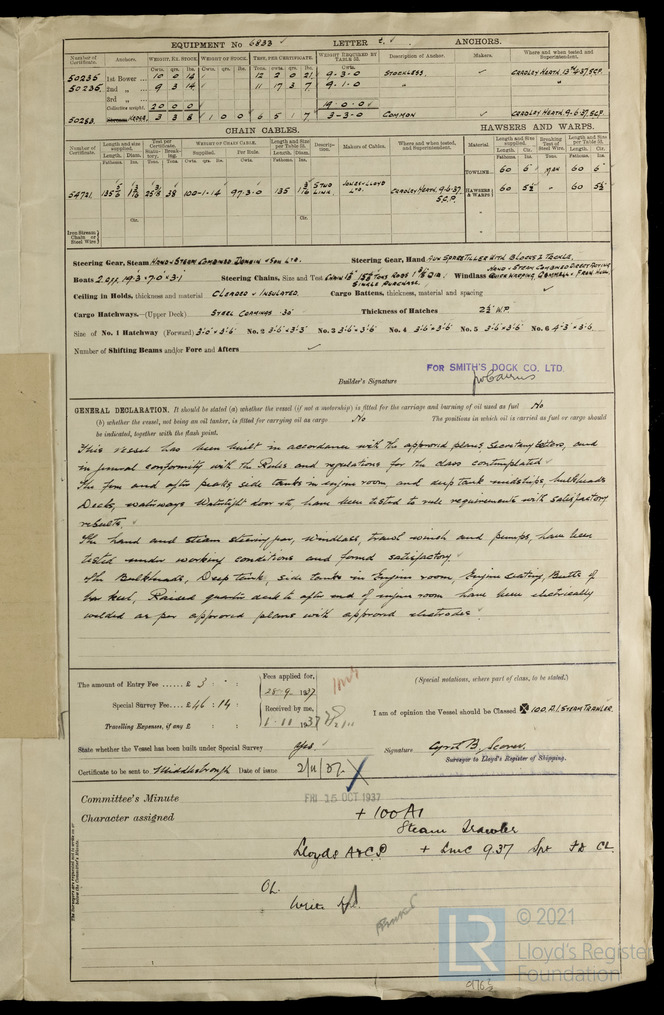 EQUIPMENT No 6833 LETTER ANCHORS.
Number of Certificate. Anchors. WEIGHT, EX. STOCK WEIGHT OF STOCK. TEST, PER CERTIFICATE. WEIGHT REQUIRED BY TABLE 53. Description of Anchor. Makers. Where and when tested and Superintendent.
Cwts. qrs. lbs. Cwts. qrs. lbs. Tons. cwts. qrs. lbs. Cwts.
50235 1st Bower ... 10 0 14 12 2 0 21 9-3-0 STOCKLESS CRADLEY HEATH
50236 2nd „ ... 9 3 14 11 17 3 7 9-1-0 "
3rd „ ...
Collective weight. 20 0 0 19-0-0
50283 KEDGE 3 3 8 1 0 0 6 5 1 7 3-3-0 COMMON CRADLEY HEATH 9-6-37 SCP
CHAIN CABLES. HAWSERS AND WARPS.
Number of Certificate. Length and size supplied. Test per Certificate. WEIGHT OF CHAIN CABLE. Length and Size per Table 53. Description. Makers of Cables. Where and when tested, and Superintendent. Material. Length and size supplied. Breaking Test of Steel Wire. Length and Size per Table 53.
Length. Diam. Supplied. Per Rule. Length. Diam. Length. Cir. Length. Cir.
TOWLINE... 60 6 60 6
54721 38 100-1-14 97-3-0 135 STUD LINK JONES & LLOYD LTD. CRADLEY HEATH 9.6.37 S.C.P. HAWSERS & WARPS 60 5½ " 60 5½
Iron Stream Chain or Steel Wire
Steering Gear, Steam HAND & STEAM COMBINED & SON LTD. Steering Gear, Hand SPARE TILLER WITH BLOCKS & TACKLE.
Boats 2 OFF, Steering Chains, Size and Test CHAIN RODS DIA. SINGLE PURCHASE. Windlass HAND & STEAM COMBINED DIRECT ACTING QUICK WARPING
Ceiling in Holds, thickness and material CLEADED & INSULATED. Cargo Battens, thickness, material and spacing
Cargo Hatchways. (Upper Deck) STEEL COAMINGS 30" Thickness of Hatches 2½" W.P.
Size of No. 1 Hatchway (Forward) No. 2 No. 3 No. 4 No. 5 No. 6
Number of Shifting Beams and/or Fore and Afters
FOR SMITH'S DOCK CO. LTD.
Builder's Signature
GENERAL DECLARATION. It should be stated (a) whether the vessel (if not a motorship) is fitted for the carriage and burning of oil used as fuel No
(b) whether the vessel, not being an oil tanker, is fitted for carrying oil as cargo No The positions in which oil is carried as fuel or cargo should
be indicated, together with the flash point.
This vessel has been built in accordance with the approved plans, Secretary's letters, and
in general conformity with the Rules and regulations for the class contemplated.
The fore and after peaks, side tanks in engine room, and deep tank midships, bulkheads
Decks, waterways Watertight door etc, have been tested to rule requirements with satisfactory
results.
The hand and steam steering gear, windlass, trawl winch and pumps, have been
tested under working conditions and found satisfactory.
The Bulkheads, Deep tank, side tanks in Engine room, Engine seating, Butts of
bar keel, Raised quarter deck to after end of engine room have been electrically
welded as per approved plans with approved electrodes.
The amount of Entry Fee ...... £ 3 : - :
Special Survey Fee .... £ 46 : 14 :
Travelling Expenses, if any £ : :
Fees applied for,
28-9 1937
Received by me,
1-11 1937
(Special notations, where part of class, to be stated.)
I am of opinion the Vessel should be Classed ✠ 100.A.1. STEAM TRAWLER.
State whether the Vessel has been built under Special Survey Yes.
Signature
Surveyor to Lloyd's Register of Shipping.
Certificate to be sent to Middlesbrough Date of issue 2/11/37
Committee's Minute FRI 15 OCT 1937
Character assigned + 100 A1
Steam Trawler
Lloyds A & C.P. + LMC 9.37 FD CL
CL.
Write
The Surveyors are requested not to write on or below the Committee's Minute.
© 2021
LR Lloyd's Register Foundation